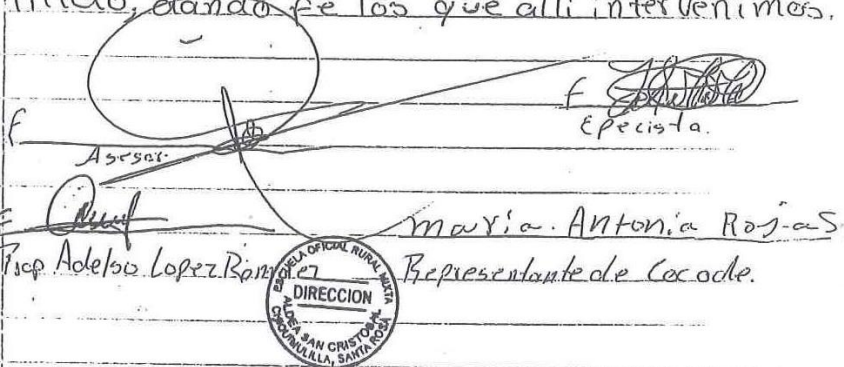 dando fe los que alli intervenimos.
f
f
Epecista.
Asesor.
Maria. Antonia Rojas
Prop Adelso Lopez Ramirez
Representante de Cocode.
ESCUELA OFICIAL RURAL MIXTA
DIRECCION
ALDEA SAN CRISTOBAL
CHIQUIMULILLA, SANTA ROSA